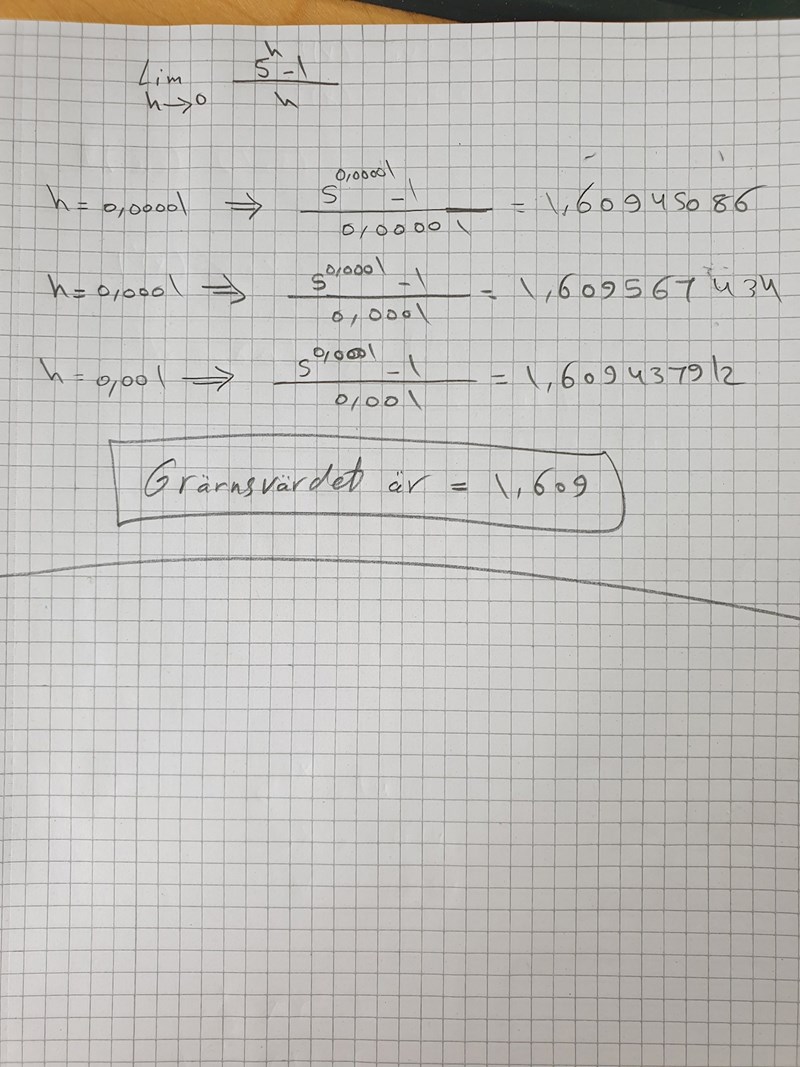 Lim h→0 (5^h -1)/h
h = 0,00001 ⇒ (5^0,00001 -1)/0,00001 = 1,60945086
h = 0,0001 ⇒ (5^0,0001 -1)/0,0001 = 1,609567434
h = 0,001 ⇒ (5^0,0001 -1)/0,001 = 1,609437912
Grärnsvärdet är = 1,609